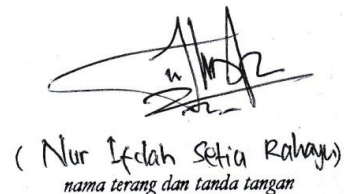 ( Nur Ifdah Setia Rahayu)
nama terang dan tanda tangan